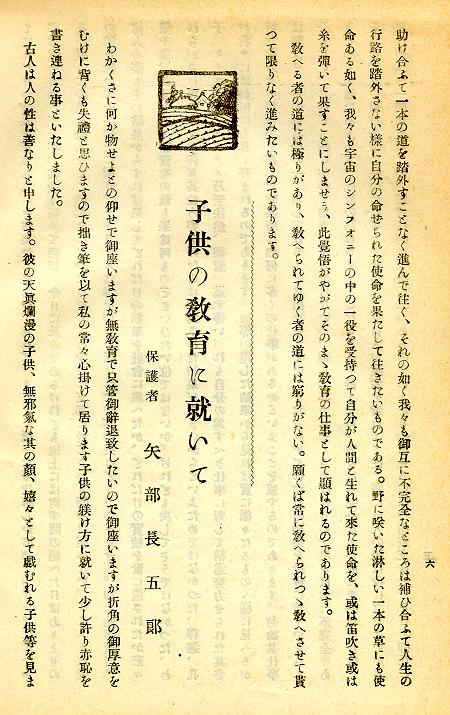 助け合ふて一本の道を踏外すことなく進んで往く、それの如く我々も御互に不完全なところは補ひ合ふて人生の
行路を踏外さない樣に自分の命ぜられた使命を果たして往きたいものである。野に咲いた淋しい一本の草にも使
命ある如く、我々も宇宙のシンフォニーの中の一役を受持つて自分が人間と生れて來た使命を、或は笛吹き或は
糸を彈いて果すことにしませう、此覺悟がやがてそのまゝ敎育の仕事として顯はれるのであります。
敎へる者の道には極りがあり、敎へられてゆく者の道には窮りがない。願くば常に敎へられつゝ敎へさせて貰
つて限りなく進みたいものであります。
子供の敎育に就いて
保護者 矢部長五郞
わかくさに何か物せよとの仰せで御座いますが無敎育で只管御辭退致したいので御座いますが折角の御厚意を
むけに背くも失禮と思ひますので拙き筆を以て私の常々心掛けて居ります子供の躾け方に就いて少し許り赤恥を
書き連ねる事といたしました。
古人は人の性は善なりと申します。彼の天眞爛漫の子供、無邪氣な其の顏、嬉々として戯むれる子供等を見ま
六